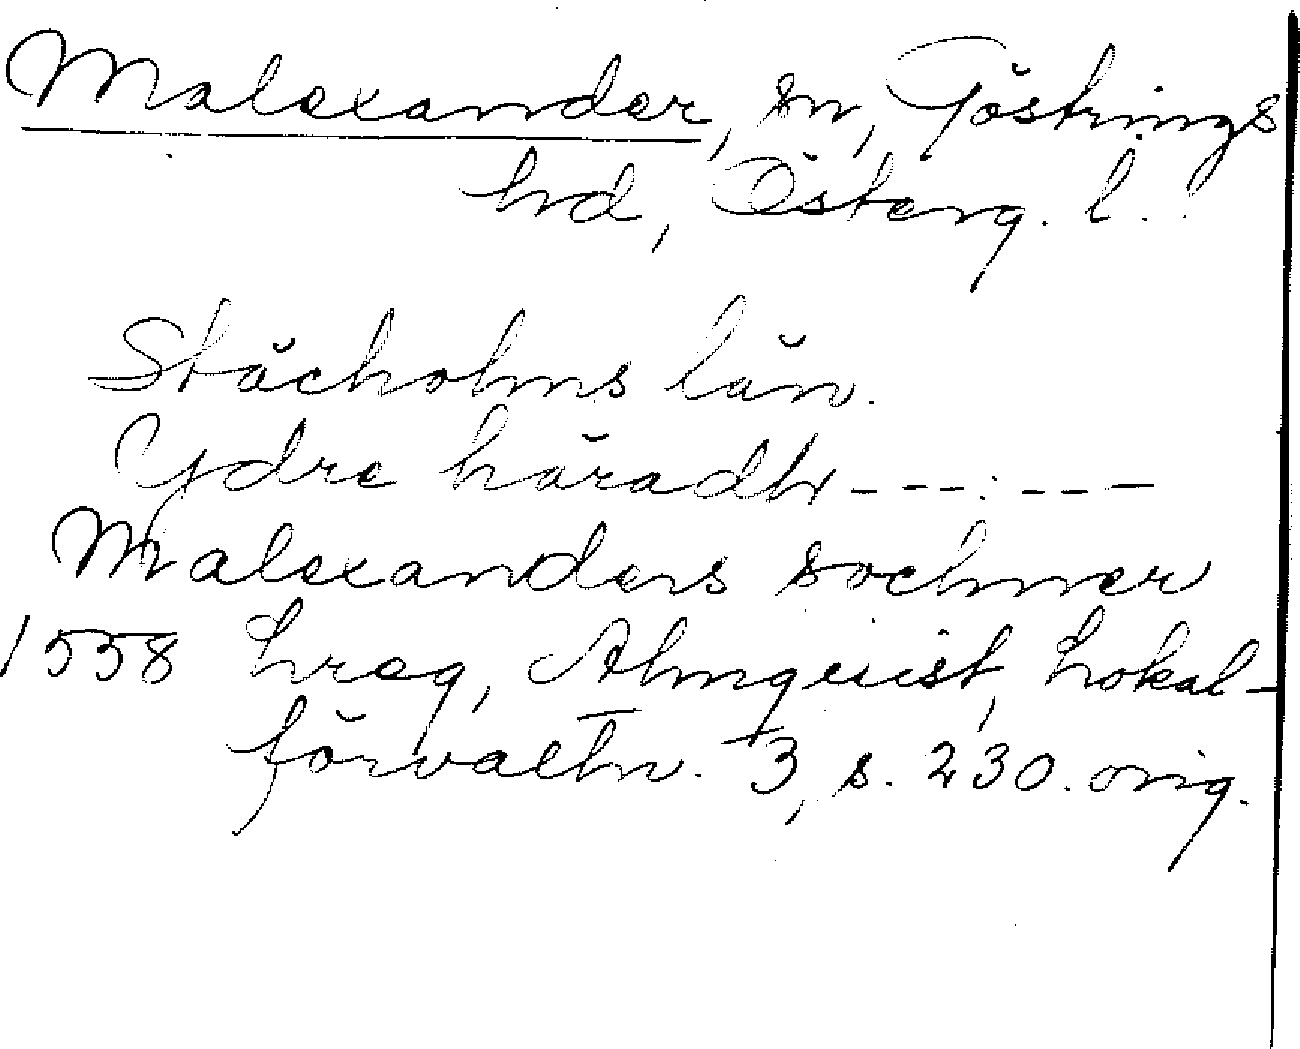 Malexander, sn, Göstrings
hd, Österg. l.
Stächolms län.
Ydre häradh ---:---
Malexanders sochner
1558 Lreg, Almquist, Lokal-
förvaltn. 3, s. 230. orig.